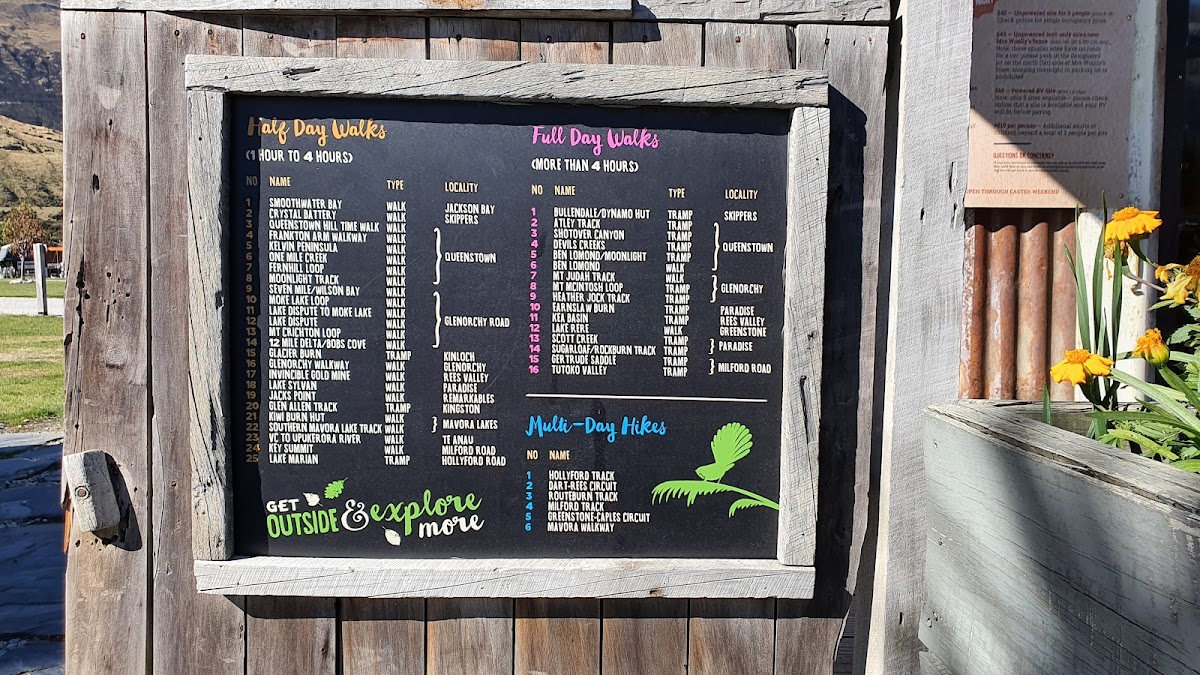 Half Day Walks
(1 HOUR TO 4 HOURS)
NO NAME TYPE LOCALITY
1 SMOOTHWATER BAY WALK JACKSON BAY
2 CRYSTAL BATTERY WALK SKIPPERS
3 QUEENSTOWN HILL TIME WALK WALK
4 FRANKTON ARM WALKWAY WALK
5 KELVIN PENINSULA WALK QUEENSTOWN
6 ONE MILE CREEK WALK
7 FERNHILL LOOP WALK
8 MOONLIGHT TRACK WALK
9 SEVEN MILE/WILSON BAY WALK
10 MOKE LAKE LOOP WALK
11 LAKE DISPUTE TO MOKE LAKE WALK GLENORCHY ROAD
12 LAKE DISPUTE WALK
13 MT CRICHTON LOOP WALK
14 12 MILE DELTA/BOBS COVE WALK
15 GLACIER BURN TRAMP KINLOCH
16 GLENORCHY WALKWAY WALK GLENORCHY
17 INVINCIBLE GOLD MINE WALK REES VALLEY
18 LAKE SYLVAN WALK PARADISE
19 JACKS POINT WALK REMARKABLES
20 GLEN ALLEN TRACK TRAMP KINGSTON
21 KIWI BURN HUT WALK MAVORA LAKES
22 SOUTHERN MAVORA LAKE TRACK WALK
23 VC TO UPUKERORA RIVER WALK TE ANAU
24 KEY SUMMIT WALK MILFORD ROAD
25 LAKE MARIAN TRAMP HOLLYFORD ROAD
GET OUTSIDE & explore more
Full Day Walks
(MORE THAN 4 HOURS)
NO NAME TYPE LOCALITY
1 BULLENDALE/DYNAMO HUT TRAMP SKIPPERS
2 ATLEY TRACK TRAMP
3 SHOTOVER CANYON TRAMP
4 DEVILS CREEKS TRAMP QUEENSTOWN
5 BEN LOMOND/MOONLIGHT TRAMP
6 BEN LOMOND WALK
7 MT JUDAH TRACK WALK
8 MT MCINTOSH LOOP TRAMP GLENORCHY
9 HEATHER JOCK TRACK TRAMP
10 EARNSLAW BURN TRAMP PARADISE
11 KEA BASIN TRAMP REES VALLEY
12 LAKE RERE WALK GREENSTONE
13 SCOTT CREEK TRAMP
14 SUGARLOAF/ROCKBURN TRACK TRAMP PARADISE
15 GERTRUDE SADDLE TRAMP
16 TUTOKO VALLEY TRAMP MILFORD ROAD
Multi-Day Hikes
NO NAME
1 HOLLYFORD TRACK
2 DART-REES CIRCUIT
3 ROUTEBURN TRACK
4 MILFORD TRACK
5 GREENSTONE-CAPLES CIRCUIT
6 MAVORA WALKWAY
OPEN THROUGH EASTER WEEKEND